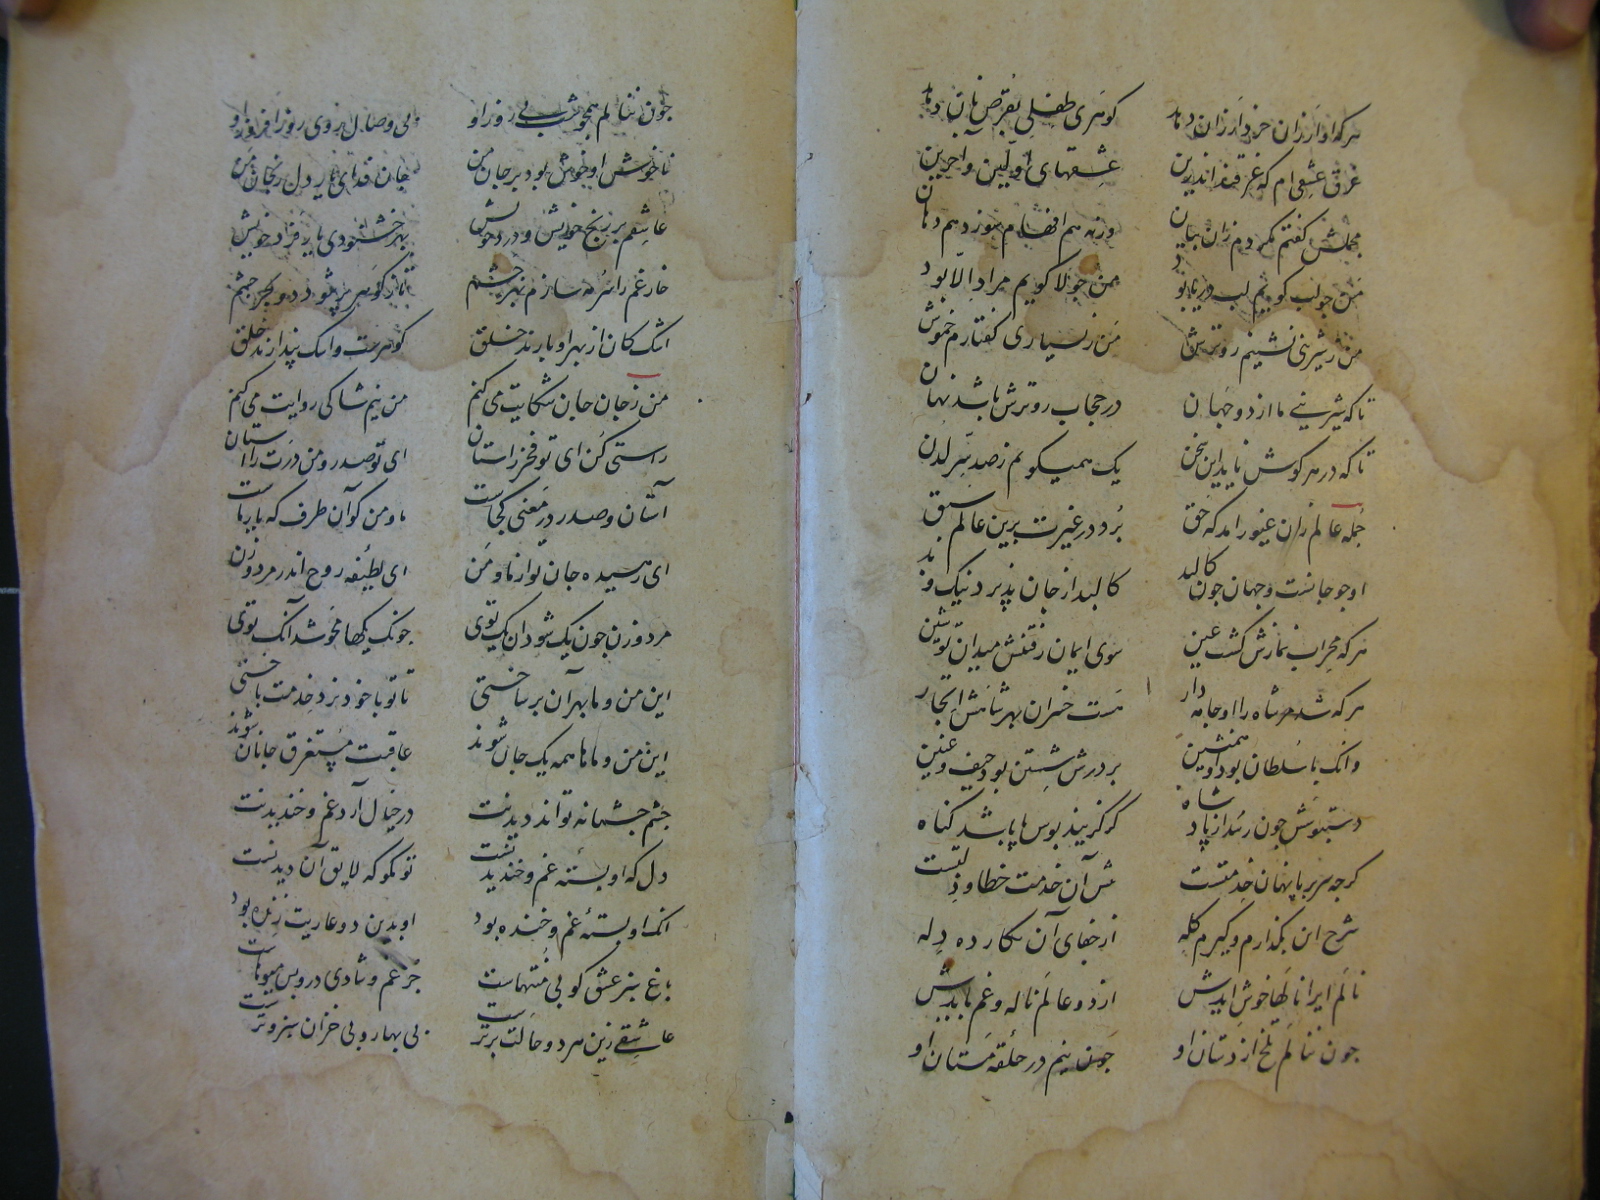 هر که او ارزان خرد ارزان دهد گوهری طفلی بقرص نان دهد
غرق عشقی ام که غرقند اندرین عشقهای اولین و آخرین
مجملش گفتم نکردم زان بیان ورنه هم افهام سوزد هم دهان
من جو لب گویم لب دریا بود من جو لا گویم مراد الا بود
من ز شیرینی نشینم رو ترش من ز بسیاری گفتارم خموش
تا که شیرینی ما از دو جهان در حجاب رو ترش باشد نهان
تا که در هر گوش ناید این سخن یک همی گویم ز صد سر لدن
جمله عالم زان غیور آمد که حق برد در غیرت برین عالم سبق
او جو جانست و جهان جون کالبد کالبد از جان پذیرد نیک و بد
هر که محراب نمازش گشت عین سوی ایمان رفتنش میدان تو شین
هر که شد مر شاه را او جامه دار هست خسران بهر شاهش اتجار
وانک با سلطان بود او همنشین بر درش شستن بود حیف و غبین
دستبوسش جون رسد از پادشاه گر گزیند بوس پا باشد گناه
گرجه سر بر پا نهادن خدمتست پیش آن خدمت خطا و زلتست
شرح این بگذارم و گیرم گله از جفای آن نگار ده دله
نالم ایرا نالها خوش آیدش از دو عالم ناله و غم بایدش
جون ننالم تلخ از دستان او جون نیم در حلقه مستان او
جون ننالم همجو شب بی روز او بی وصال روی روز افروز او
ناخوش او خوش بود بر جان من جان فدای یار دل رنجان من
عاشقم بر رنج خویش و درد خویش بهر خشنودی شاه فرد خویش
خاک غم را سرمه سازم بهر جشم تا ز گوهر پر شود دو بحر جشم
اشک کان از بهر او بارند خلق گوهرست و اشک پندارند خلق
من ز جان جان شکایت می کنم من نیم شاکی روایت می کنم
راستی کن ای تو فخر راستان ای تو صدر و من درت را آستان
آستان و صدر در معنی کجاست ما و من کو آن طرف که یار ماست
ای رهیده جان تو از ما و من ای لطیفه روح اندر مرد و زن
مرد و زن جون یک شود آن یک توی جونک یکها محو شد آنک توی
این من و ما بهر آن بر ساختی تا تو با خود نرد خدمت باختی
این من و ماها همه یک جان شوند عاقبت مستغرق جانان شوند
جشم جسمانه تواند دیدنت در خیال آرد غم و خندیدنت
دل که او بسته غم و خندیدنست تو مگو که لایق آن دیدنست
آنک او بسته غم و خنده بود او بدین دو عاریت زنده بود
باغ سبز عشق کو بی منتهاست جز غم و شادی درو بس میوهاست
عاشقی زین هر دو حالت برترست بی بهار و بی خزان سبز و ترست